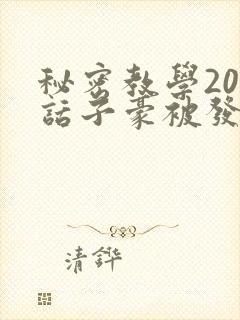 秘密教學20
話子豪被發
清鏵